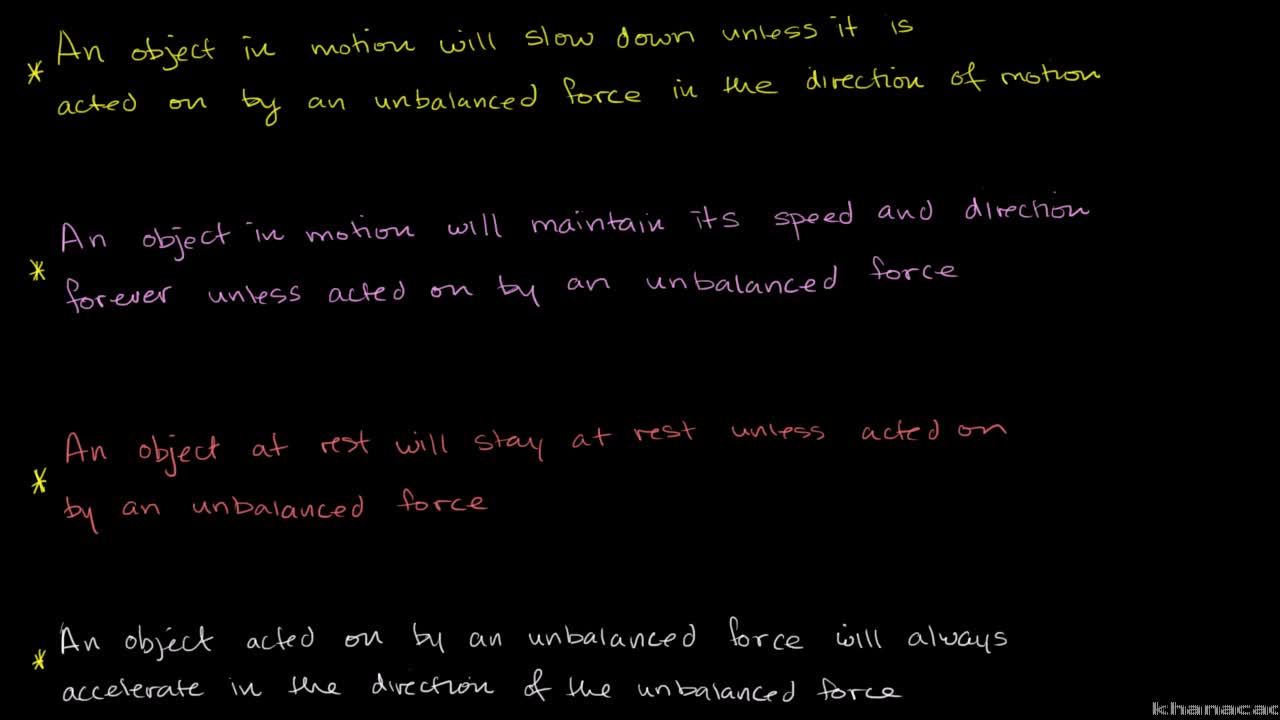 * An object in motion will slow down unless it is
acted on by an unbalanced force in the direction of motion
* An object in motion will maintain its speed and direction
forever unless acted on by an unbalanced force
* An object at rest will stay at rest unless acted on
by an unbalanced force
* An object acted on by an unbalanced force will always
accelerate in the direction of the unbalanced force
khanacac